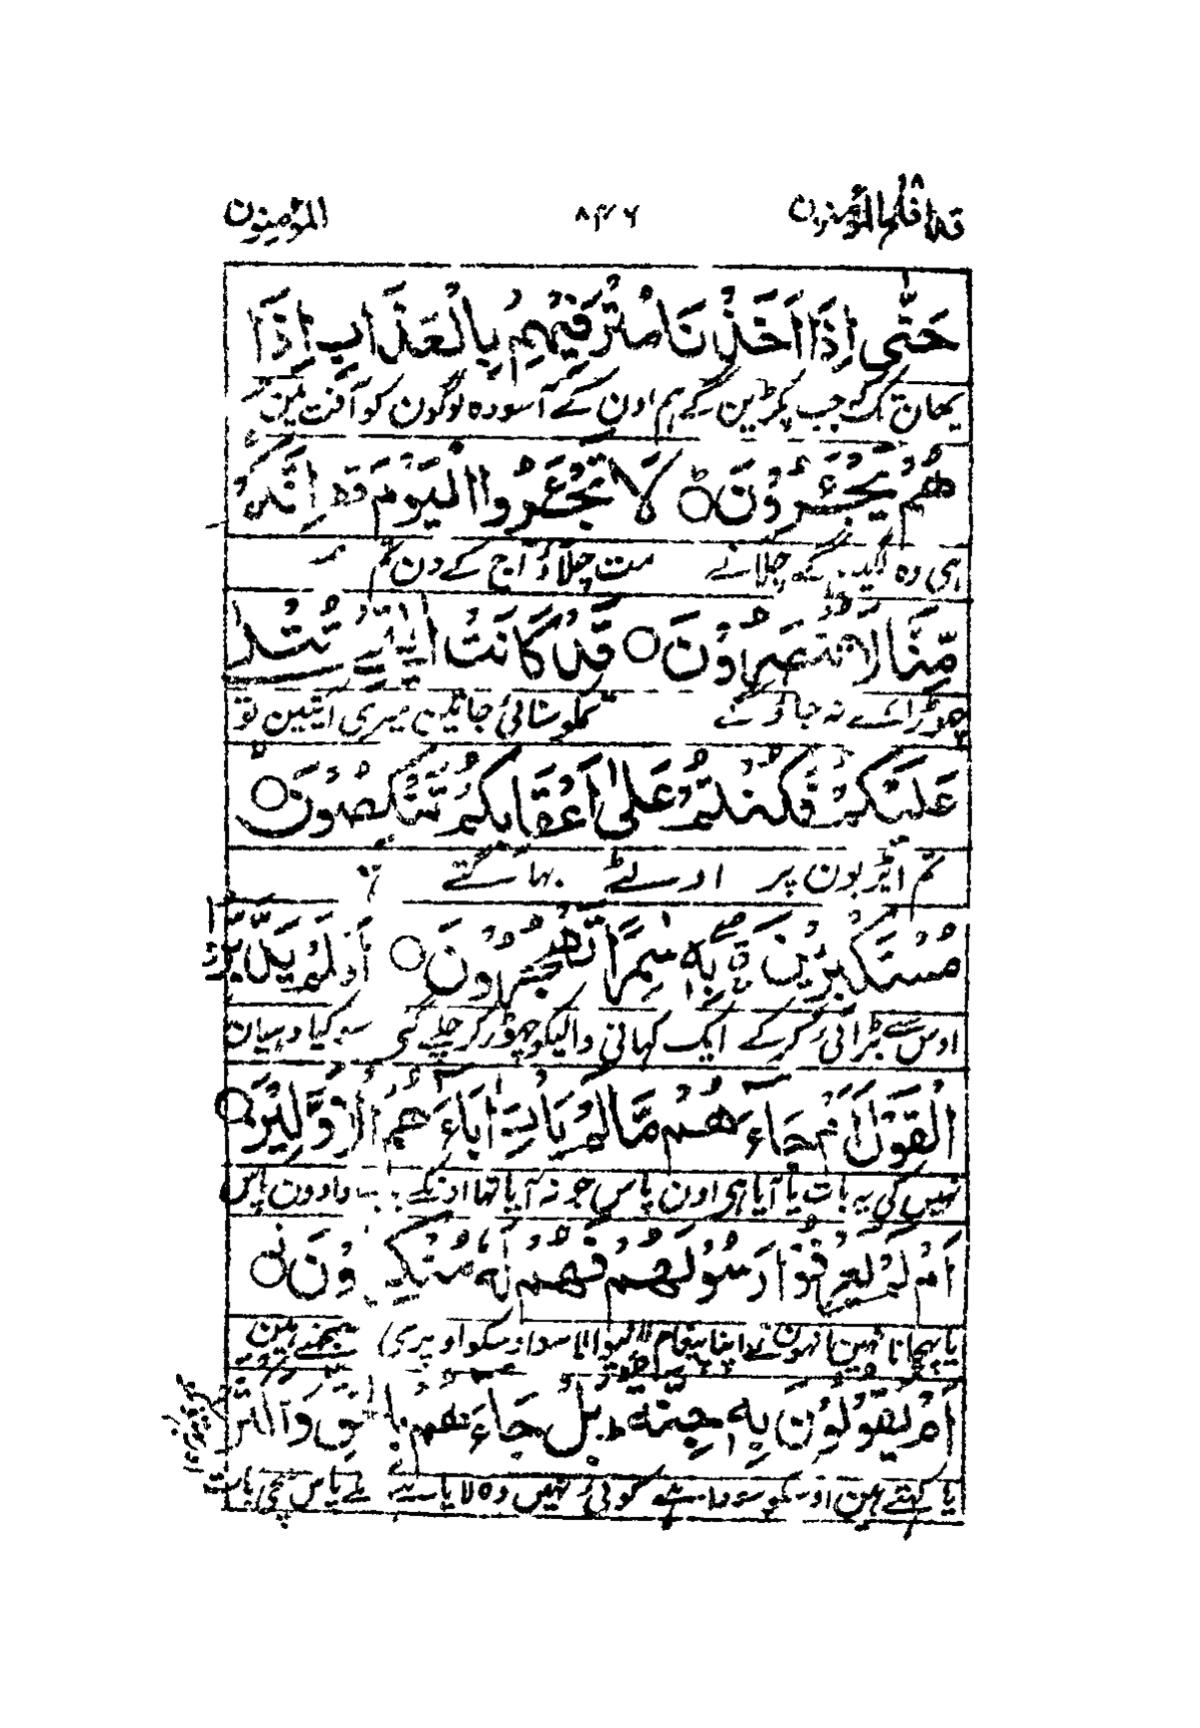 قد افلح المؤمنون ١٨ ٨٣٦ المؤمنون
حَتّٰى اِذَا اَخَذْنَا مُتْرَفِيْهِمْ بِالْعَذَابِ اِذَا
یہان تک کہ جب پکڑین گے ہم اون کے آسودہ لوگون کو آفت مین
هُمْ يَجْئَرُوْنَ ○ لَا تَجْئَرُوا الْيَوْمَ قف اِنَّكُمْ
ہی وہ لگین گے چلانے مت چلاؤ آج کے دن تم
مِّنَّا لَا تُنْصَرُوْنَ ○ قَدْ كَانَتْ اٰيٰتِيْ تُتْلٰى
چھوڑائے نہ جاؤگے تمکو سنائی جاتین میری آیتین تو
عَلَيْكُمْ فَكُنْتُمْ عَلٰٓى اَعْقَابِكُمْ تَنْكِصُوْنَ ○
تم ایڑیون پر اولٹے بہاگتے
مُسْتَكْبِرِيْنَ بِهٖ سٰمِرًا تَهْجُرُوْنَ ○ اَفَلَمْ يَدَّبَّرُوا
اوس سے بڑائی کرکے ایک کہانی والیکو چھوڑ کر چلے گئی سو کیا دہیان
الْقَوْلَ اَمْ جَآءَهُمْ مَّا لَمْ يَاْتِ اٰبَآءَهُمُ الْاَوَّلِيْنَ ○
نہین کی یہ بات یا آیا ہی اون پاس جو نہ آیا تہا اونکے باپ دادون پاس
اَمْ لَمْ يَعْرِفُوْا رَسُوْلَهُمْ فَهُمْ لَهٗ مُنْكِرُوْنَ ○
یا پہچانا نہین انہون نے اپنا پیغام لانیوالا سو اوسکو اوپری سمجھتے ہین
اَمْ يَقُوْلُوْنَ بِهٖ جِنَّةٌ ط بَلْ جَآءَهُمْ بِالْحَقِّ وَاَكْثَرُ
یا کہتے ہین اوسکو سودا ہے کوئی نہین وہ لایا ہے پاس سچی بات